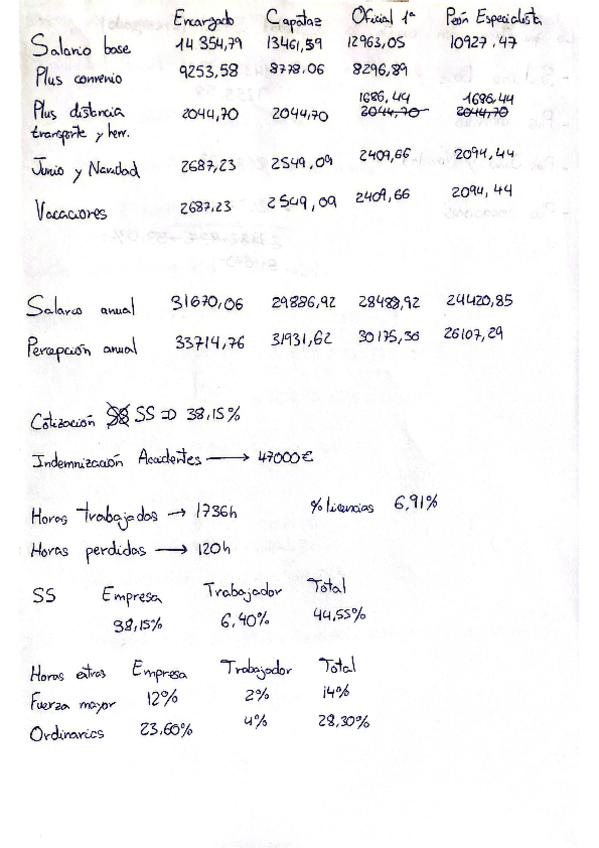 Encargado Capataz Oficial 1ª Peón Especialista
Salario base 14354,79 13461,59 12963,05 10927.47
Plus convenio 9253,58 8778.06 8296,89
1686,44 1686,44
Plus distancia 2044,70 2044,70 2044,70 2044,70
transporte y herr.
Junio y Navidad 2687,23 2549,09 2409,66 2094,44
Vacaciones 2687,23 2549,09 2409,66 2094,44
Salario anual 31670,06 29886,92 28488,92 24420,85
Percepción anual 33714,76 31931,62 30175,36 26107,29
Cotización SS => 38,15%
Indemnización Accidentes → 47000€
Horas trabajadas → 1736h % licencias 6,91%
Horas perdidas → 120h
SS Empresa Trabajador Total
38,15% 6,40% 44,55%
Horas extras Empresa Trabajador Total
Fuerza mayor 12% 2% 14%
Ordinarias 23,60% 4% 28,30%